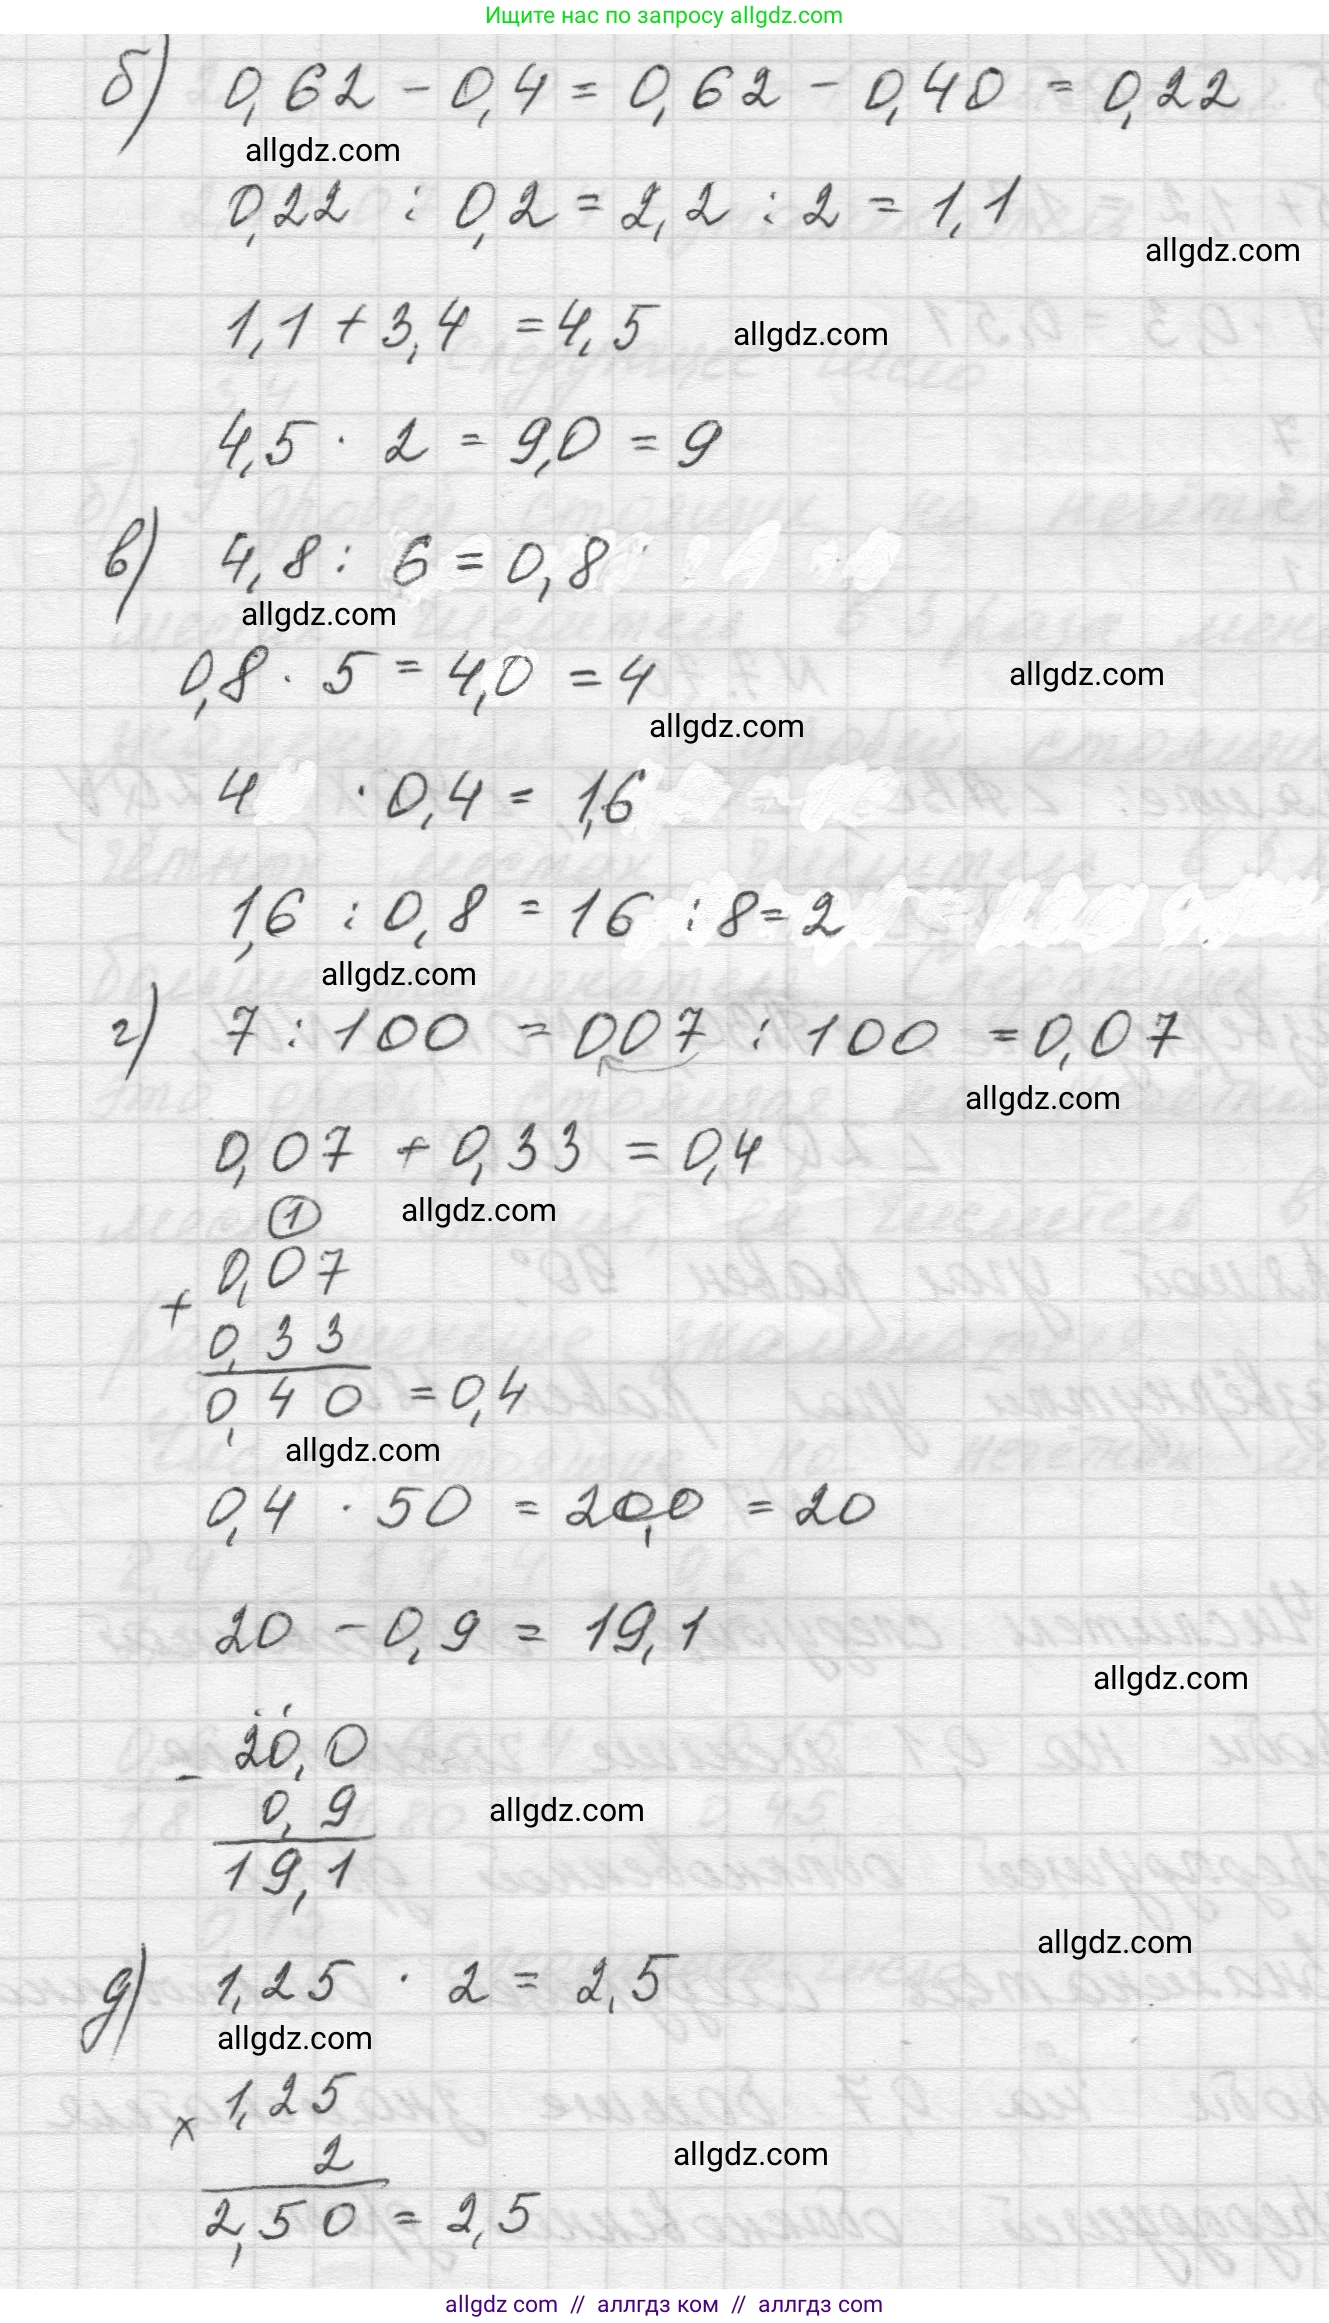 Ищите нас по запросу allgdz.com
б) 0,62 - 0,4 = 0,62 - 0,40 = 0,22
allgdz.com
0,22 : 0,2 = 2,2 : 2 = 1,1
allgdz.com
1,1 + 3,4 = 4,5 allgdz.com
4,5 · 2 = 9,0 = 9
в) 4,8 : 6 = 0,8
allgdz.com
0,8 · 5 = 4,0 = 4 allgdz.com
allgdz.com
4 · 0,4 = 1,6
1,6 : 0,8 = 16 : 8 = 2
allgdz.com
г) 7 : 100 = 007 : 100 = 0,07
allgdz.com
0,07 + 0,33 = 0,4
1 allgdz.com
0,07
+
0,33
0,40 = 0,4
allgdz.com
0,4 · 50 = 20,0 = 20
20 - 0,9 = 19,1
allgdz.com
20,0
-
0,9 allgdz.com
19,1
allgdz.com
д) 1,25 · 2 = 2,5
allgdz.com
1,25
×
2 allgdz.com
2,50 = 2,5
allgdz com // аллгдз ком // аллгдз com